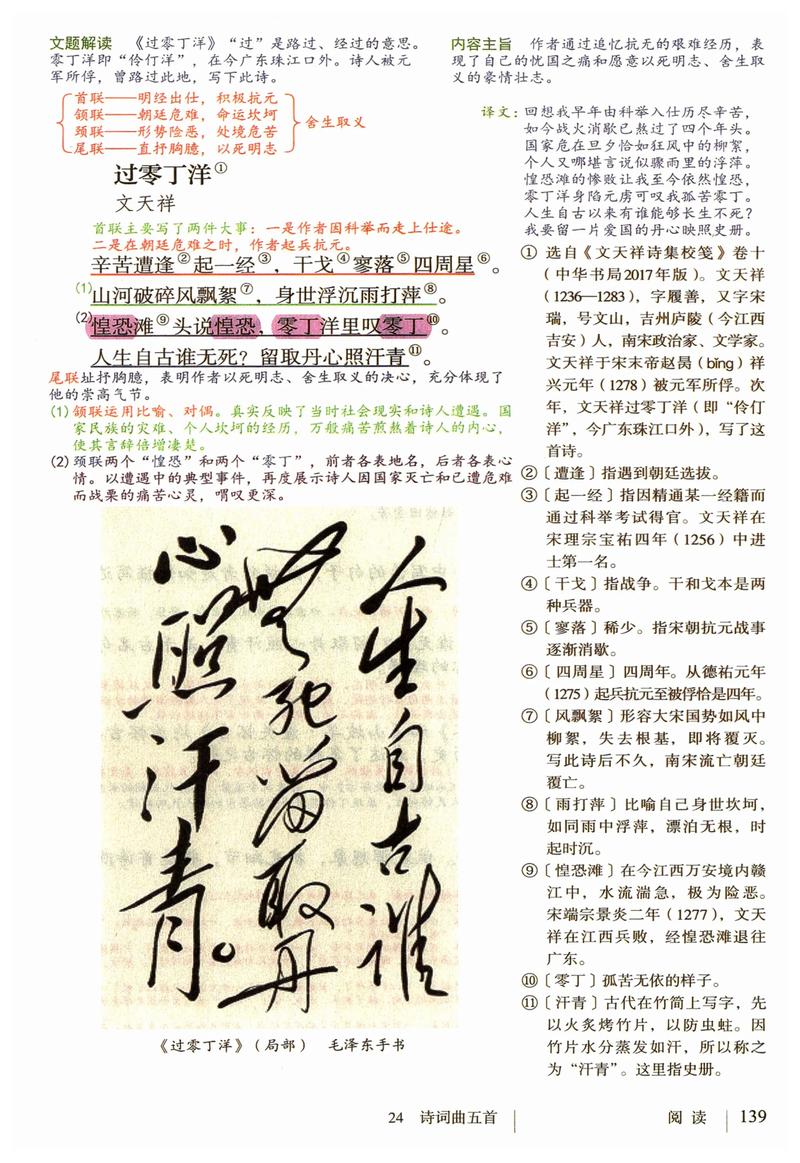 文题解读 《过零丁洋》“过”是路过、经过的意思。
零丁洋即“伶仃洋”，在今广东珠江口外。诗人被元
军所俘，曾路过此地，写下此诗。
首联——明经出仕，积极抗元
颔联——朝廷危难，命运坎坷
颈联——形势险恶，处境危苦
尾联——直抒胸臆，以死明志
舍生取义
过零丁洋①
文天祥
首联主要写了两件大事：一是作者因科举而走上仕途。
二是在朝廷危难之时，作者起兵抗元。
辛苦遭逢②起一经③，干戈④寥落⑤四周星⑥。
(1)山河破碎风飘絮⑦，身世浮沉雨打萍⑧。
(2)惶恐滩⑨头说惶恐，零丁洋里叹零丁⑩。
人生自古谁无死？留取丹心照汗青⑪。
尾联址抒胸臆，表明作者以死明志、舍生取义的决心，充分体现了
他的崇高气节。
(1)颔联运用比喻、对偶。真实反映了当时社会现实和诗人遭遇。国
家民族的灾难、个人坎坷的经历，万般痛苦煎熬着诗人的内心，
使其言辞倍增凄楚。
(2)颈联两个“惶恐”和两个“零丁”，前者各表地名，后者各表心
情。以遭遇中的典型事件，再度展示诗人因国家灭亡和己遭危难
而战栗的痛苦心灵，喟叹更深。
人生自古谁
无死留取丹
心照汗青。
《过零丁洋》（局部） 毛泽东手书
内容主旨 作者通过追忆抗元的艰难经历，表
现了自己的忧国之痛和愿意以死明志、舍生取
义的豪情壮志。
译文：回想我早年由科举入仕历尽辛苦，
如今战火消歇已熬过了四个年头。
国家危在旦夕恰如狂风中的柳絮，
个人又哪堪言说似骤雨里的浮萍。
惶恐滩的惨败让我至今依然惶恐，
零丁洋身陷元虏可叹我孤苦零丁。
人生自古以来有谁能够长生不死？
我要留一片爱国的丹心映照史册。
① 选自《文天祥诗集校笺》卷十
（中华书局2017年版）。文天祥
（1236—1283），字履善，又字宋
瑞，号文山，吉州庐陵（今江西
吉安）人，南宋政治家、文学家。
文天祥于宋末帝赵昺（bǐng）祥
兴元年（1278）被元军所俘。次
年，文天祥过零丁洋（即“伶仃
洋”，今广东珠江口外），写了这
首诗。
②〔遭逢〕指遇到朝廷选拔。
③〔起一经〕指因精通某一经籍而
通过科举考试得官。文天祥在
宋理宗宝祐四年（1256）中进
士第一名。
④〔干戈〕指战争。干和戈本是两
种兵器。
⑤〔寥落〕稀少。指宋朝抗元战事
逐渐消歇。
⑥〔四周星〕四周年。从德祐元年
（1275）起兵抗元至被俘恰是四年。
⑦〔风飘絮〕形容大宋国势如风中
柳絮，失去根基，即将覆灭。
写此诗后不久，南宋流亡朝廷
覆亡。
⑧〔雨打萍〕比喻自己身世坎坷，
如同雨中浮萍，漂泊无根，时
起时沉。
⑨〔惶恐滩〕在今江西万安境内赣
江中，水流湍急，极为险恶。
宋端宗景炎二年（1277），文天
祥在江西兵败，经惶恐滩退往
广东。
⑩〔零丁〕孤苦无依的样子。
⑪〔汗青〕古代在竹简上写字，先
以火炙烤竹片，以防虫蛀。因
竹片水分蒸发如汗，所以称之
为“汗青”。这里指史册。
24 诗词曲五首
阅读 139